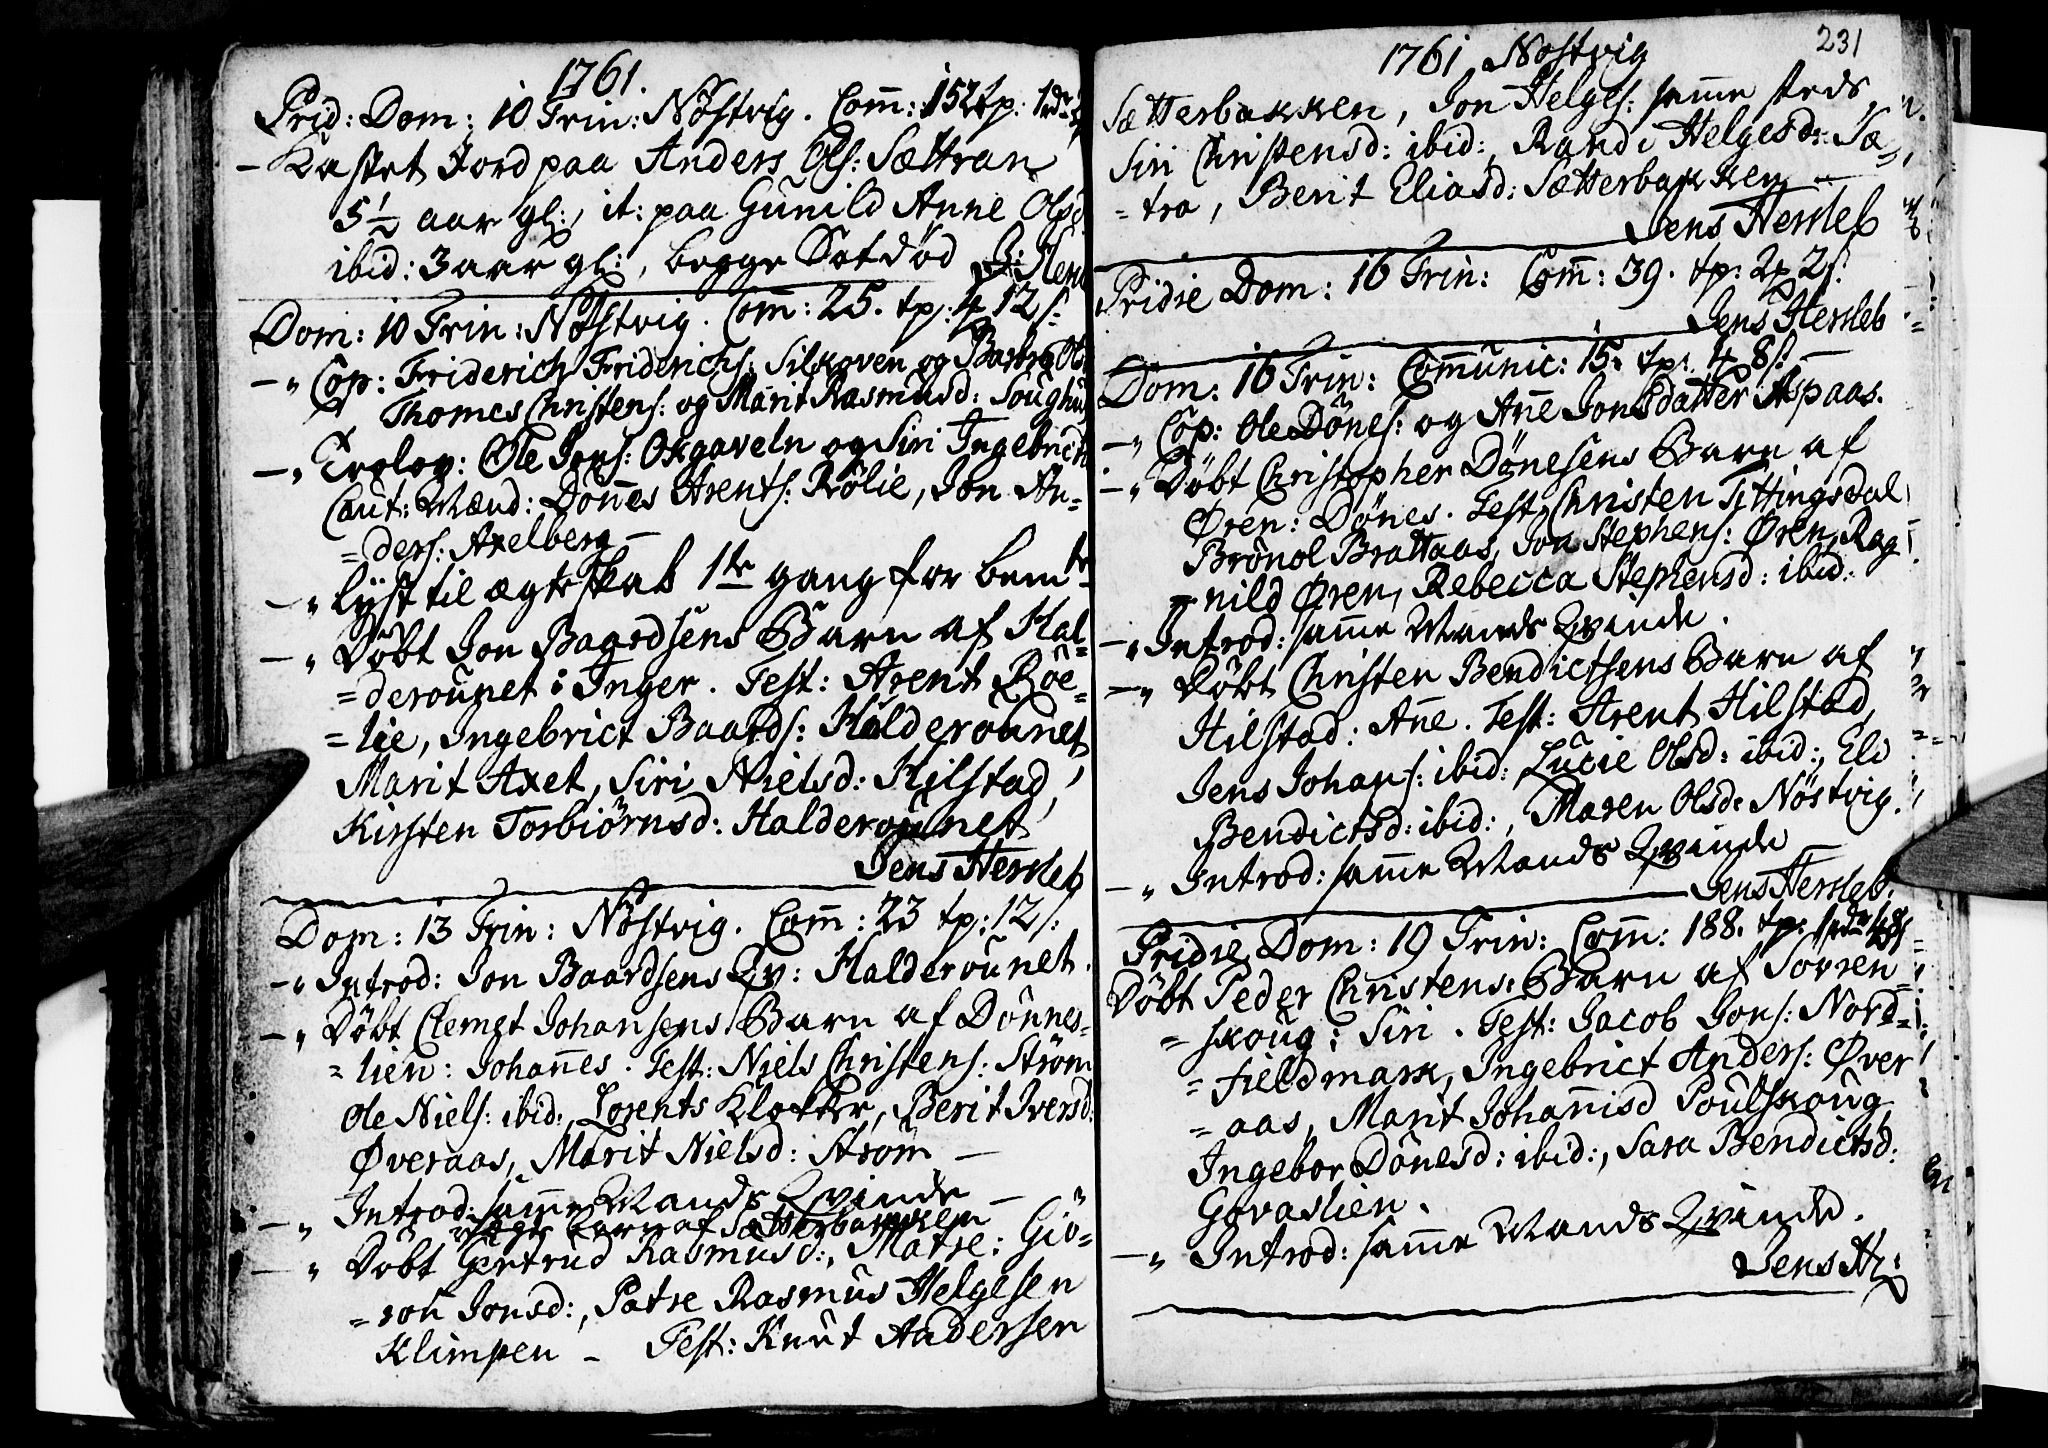 1761.
Prid: Dom: 10 Trin: Nöstvig. Com̄: 152 tp: 1rdr
– Kastet Jord paa Anders Ols: Sættran
5½ aar gl:, it: paa Gunild Anne Olsd
ibid: 3 aar gl:, begge Sotdød J: Hers
Dom: 10 Trin: Nöstvig. Com̄: 25. tp: 4 12 s:
–〃 Cop: Friderich Friderichs: Silkoven og Barbra Ols
Thomes Christens: og Marit Rasmusd: Soughus
–〃 Trolov: Ole Jons: Oxgaveln og Siri Ingebrictsd
Caut: Mænd: Don̄es Arents: Rölie, Jon An-
=ders: Axelberg –
–〃 lyst til ægteskab 1te gang for bemte
–〃 Döbt Jon Baardsens Barn af Hal-
=derounet: Inger. Test: Arent Röe-
=lie, Ingebrict Baards: Halderounet,
Marit Axet, Siri Nielsd: Hilstad,
Kirsten Torbiörnsd: Halderounet
Jens Hersleb
Dom: 13 Trin: Nöstvig. Com̄: 23 tp: 12 s:
–〃 Introd: Jon Baardsens Qv: Halderounet.
–〃 Döbt Clemet Johansens Barn af Dönnes-
=lien: Johan̄es. Test: Niels Christens: Ström
Ole Niels: ibid:, Lorents Klokker, Berit Iversd:
Øveraas, Marit Nielsd: Ström –
–〃 Introd: sam̄e Mands Qvinde –
uægte Barn af Sætterbakken
–〃 Döbt Gertrud Rasmusd:, Matre: Giö-
=roe Jonsd:, Patre Rasmus Helgesen
Klimpen – Test: Knut Andersen
1761 Nostvig
231
Sætterbakken, Jon Helges: sam̄e steds,
Siri Christensd: ibid:, Randi Helgesd: Sæ-
=tra, Berit Eliasd: Sætterbakken –
Jens Hersleb
Pridie Dom: 16 Trin: Com̄: 39. tp: 2p 2 s:
Jens Hersleb
Dom: 16 Trin: Com̄unic: 15. tp: 4 8 s: –
–〃 Cop: Ole Dönes: og An̄e Jonsdatter Aspaas.
–〃 Döbt Christopher Dönesens Barn af
Øren: Dönes. Test: Christen Tittingsdal
Brönol Brattaas, Jon Stephens: Øren, Rag
=nild Øren, Rebecca Stephensd: ibid:
–〃 Introd: sam̄e Mands Qvinde.
–〃 Döbt Christen Bendictsens Barn af
Hilstad: An̄e. Test: Arent Hilstad,
Jens Johans: ibid: Lucie Olsd: ibid:, Eli
Bendictsd: ibid:, Maren Olsd: Nöstvig.
–〃 Introd: sam̄e Mands Qvinde –
Jens Hersleb.
Pridie Dom: 19 Trin: Com̄: 188. tp: 1rdr
Döbt Peder Christens: Barn af Sorren
=skoug: Siri. Test: Jacob Jons: Nord-
=fieldmark, Ingebrict Anders: Øver
=aas, Marit Johan̄isd Poulskoug
Ingebor Dönesd: ibid:, Sara Bendictsd:
Govaslien.
–〃 Introd: sam̄e Mands Qvinde.
Jens H: